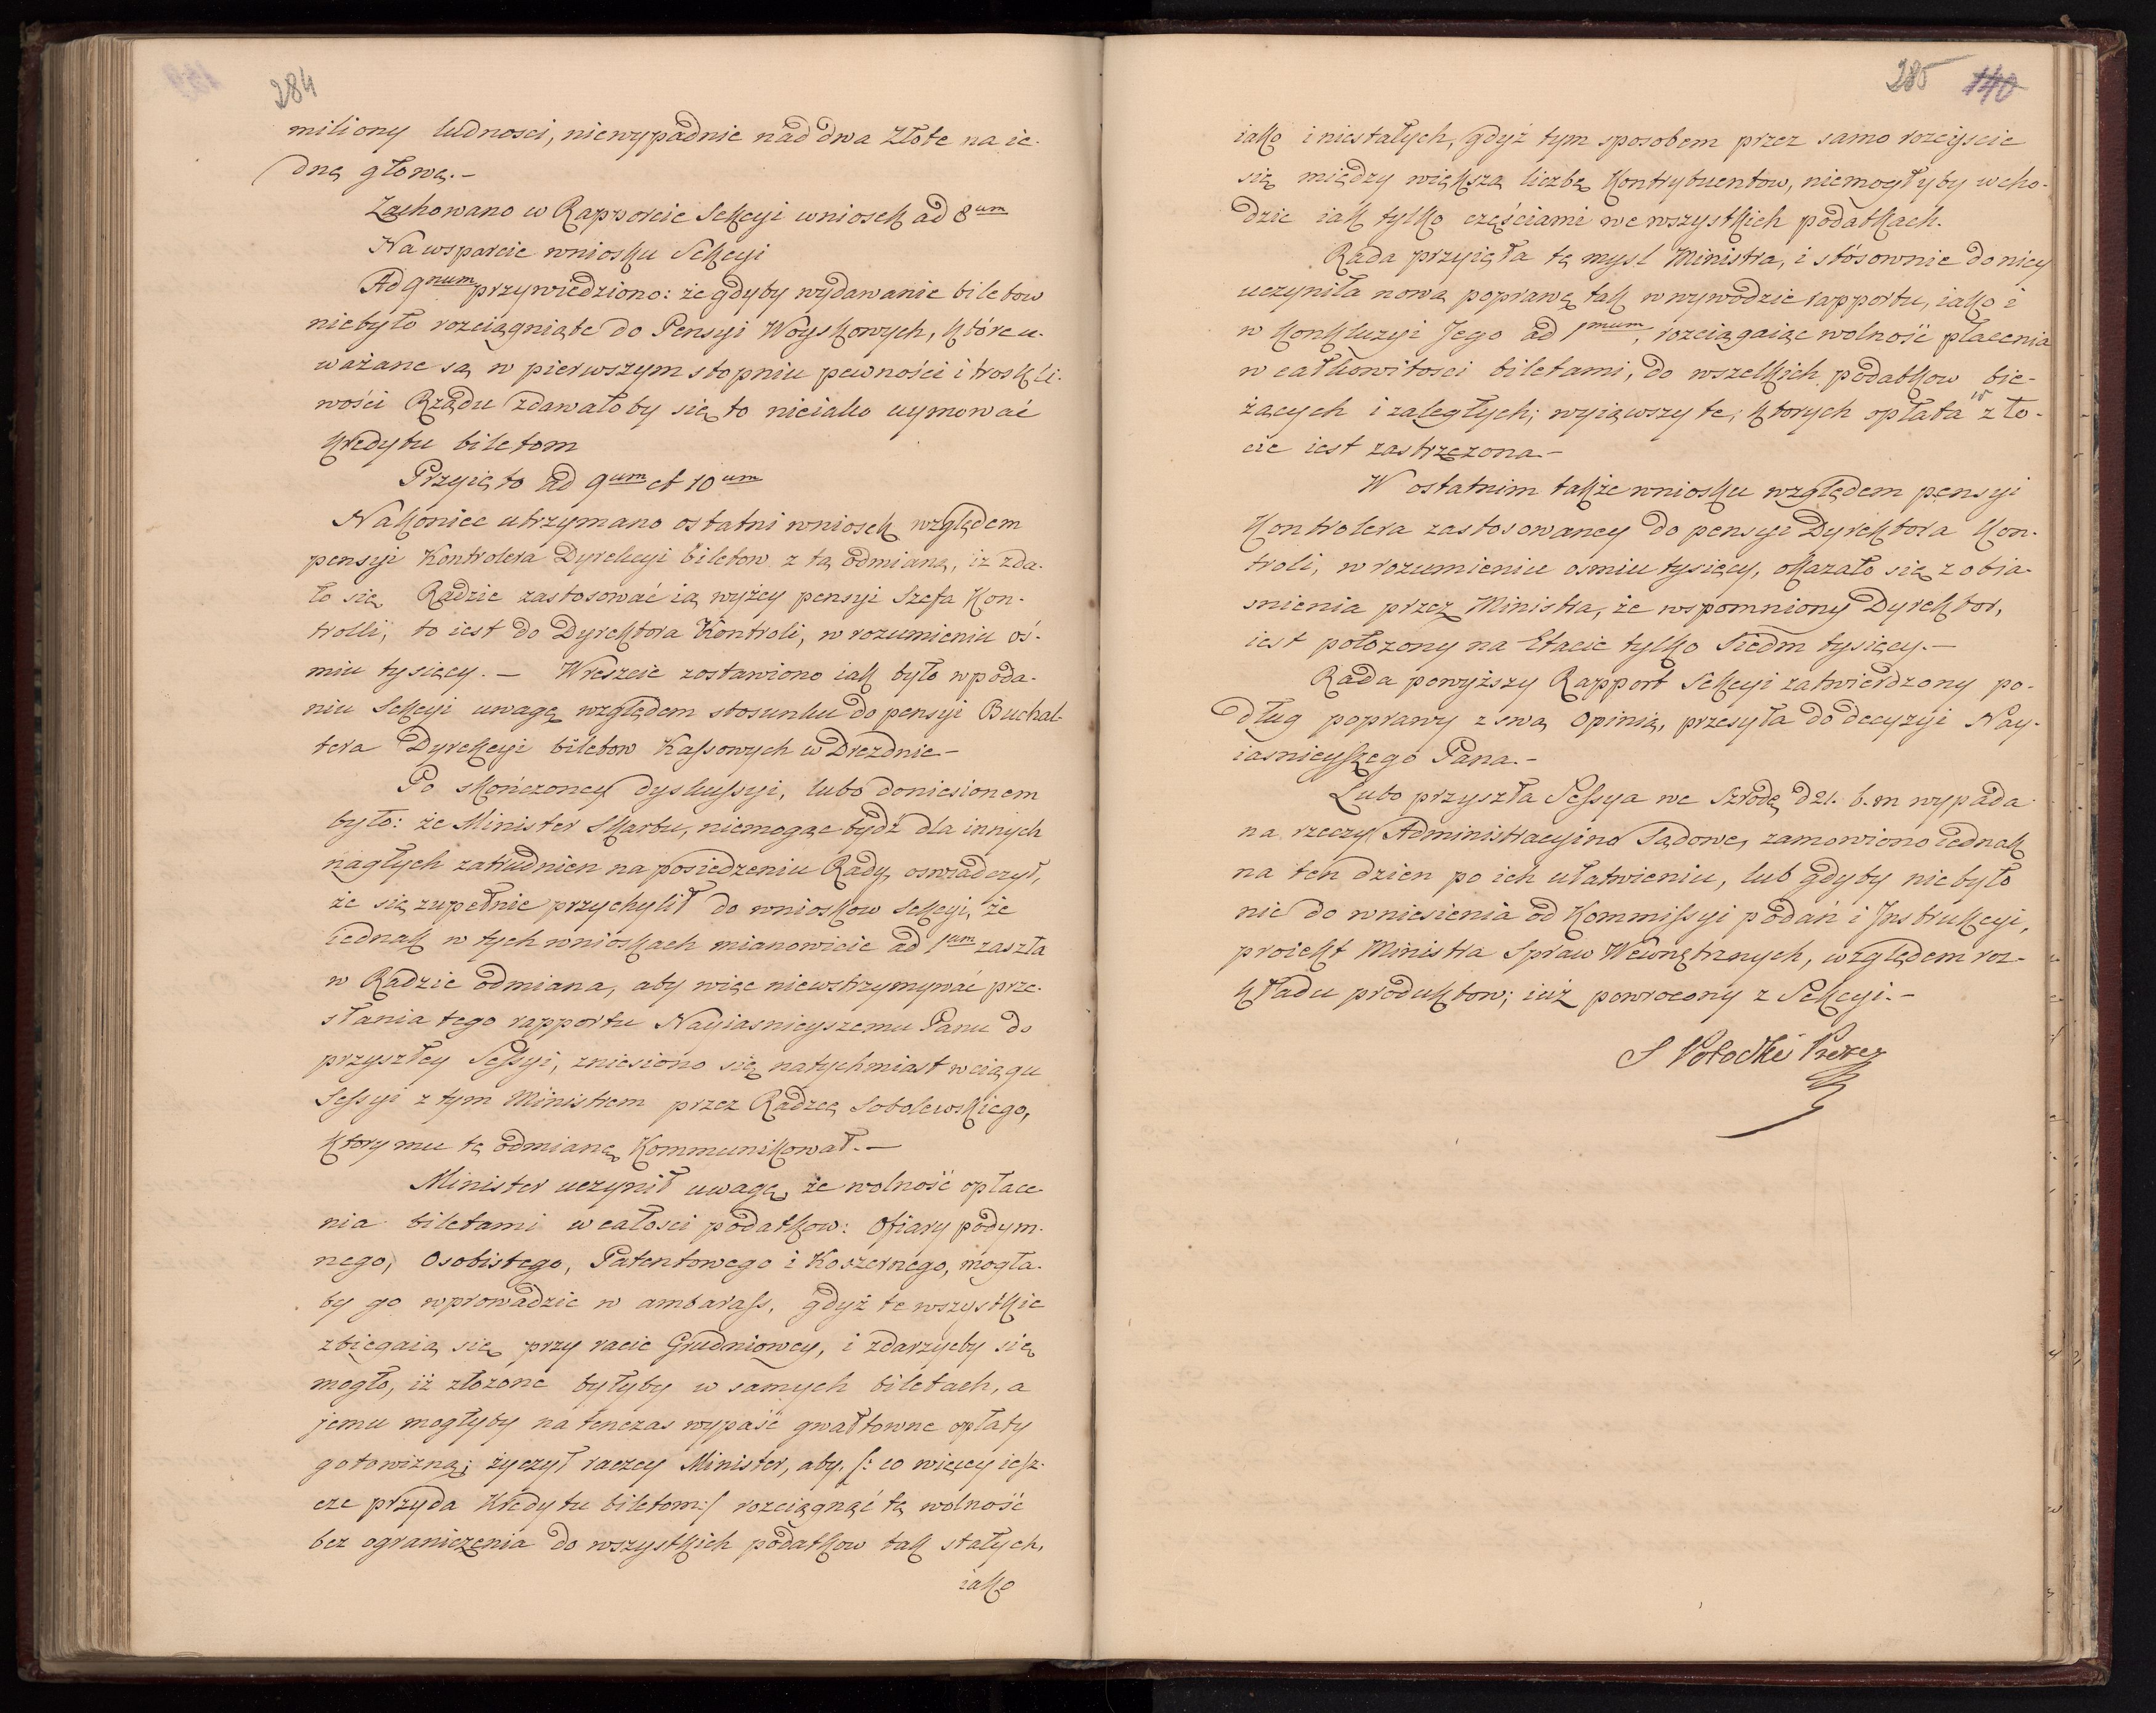 284
miliony ludnosci, niewypadnie nad dwa Złote na ie-
dną głowę.-
Zachowano w Rapporcie Sekcyi wniosek ad 8um
Na wsparcie wniosku Sekcyi
Ad 9num przywiedziono: że gdyby wydawanie biletow
niebyło rozciągniąte do Pensyi Woyskowych, które u-
ważane są w pierwszym stopniu pewności i troskli-
wości Rządu zdawałoby się to nieiako uymować
kredytu biletom
Przyięto ad 9um et 10um
Nakoniec utrzymano ostatni wniosek względem
pensyi Kontrolera Dyrekcyi biletow z tą odmianą, iż zda-
ło się Radzie zastosować ią wyżey pensyi Szefa Kon-
trolli, to iest do Dyrektora Kontroli, w rozumieniu oś-
miu tysięcy. — Wreszcie zostawiono iak było w poda-
niu Sekcyi uwagę względem stosunku do pensyi Buchal-
tera Dyrekcyi biletow Kassowych w Dreznie-
Po skończoney dyskussyi, lubo doniesionem
było: że Minister Skarbu, niemogąc bydź dla innych
nagłych zatrudnien na posiedzeniu Rady, oswiadczył,
że się zupełnie przychylił do wnioskow Sekcyi, że
iednak w tych wnioskach mianowicie ad 1um zaszła
w Radzie odmiana, aby więc niewstrzymywać prze-
słania tego rapportu Nayiasnieyszemu Panu do
przyszłey Sessyi, zniesiono się natychmiast w ciągu
Sessyi z tym Ministrem przez Radzcę Sobolewskiego,
ktory mu tę odmianę Kommunikował.—
Minister uczynił uwagę, że wolność opłace
nia biletami w całosci podatkow: Ofiary podym-
nego, Osobistego, Patentowego i Koszernego, mogła-
by go wprowadzic w ambarass, gdyż te wszystkie
zbiegaią się przy racie Grudniowey, i zdarzycby się
mogło, iż złozone byłyby w samych biletach, a
jemu mogłyby na tenczas wypaść gwałtowne opłaty
gotowizną; życzył raczey Minister, aby /: co więcey iesz-
cze przyda Kredytu biletom:/ rozciągnąć tę wolność
bez ograniczenia do wszystkich podatkow tak stałych,
iako
285 140
iako i niestałych, gdyż tym sposobem przez samo rozeyscie
się między większą liczbę Kontrybuentow, niemogłyby wcho-
dzic iak tylko częściami we wszystkich podatkach.
Rada przyięła tę mysl Ministra, i stósownie do niey
uczyniła nową poprawę tak w wywodzie rapportu, iako i
w Konkluzyi Jego ad 1mum, rozciągaiąc wolność płacenia
w całkowitosci biletami, do wszelkich podatkow bie-
żących i zaległych; wyiąwszy te, ktorych opłata w zło-
cie iest zastrzeżona.-
W ostatnim także wniosku względem pensyi
Kontrolera zastosowaney do pensyi Dyrektora Kon-
troli, w rozumieniu osmiu tysięcy, okazało się z obia-
snienia przez Ministra, że wspomniony Dyrektor,
iest położony na Etacie tylko Siedm tysięcy.—
Rada powyższy Rapport Sekcyi zatwierdzony po-
dług poprawy z swą Opinią, przesyła do decyzyi Nay-
iasnieyszego Pana.-
Lubo przyszła Sessya we Szrodę d 21. b. m wypada
na rzeczy Administracyino Sądowe, zamowiono iednak
na ten dzien po ich ułatwieniu, lub gdyby niebyło
nic do wniesienia od Kommissyi podań i Jnstrukcyi,
proiekt Ministra Spraw Wewnętrznych, względem roz-
kładu produktow; iuż powrocony z Sekcyi.-
S Potocki Prezes